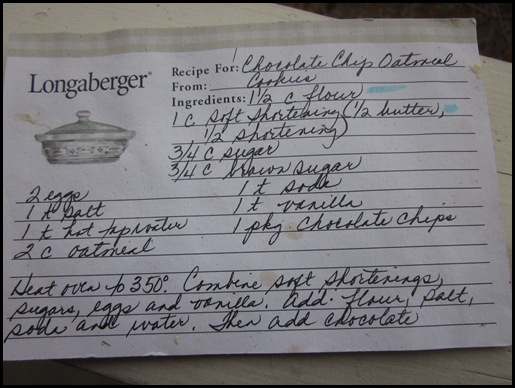 Longaberger®
Recipe For: Chocolate Chip Oatmeal
From: Cookies
Ingredients: 1 1/2 c flour
1 c soft shortening (1/2 butter,
1/2 shortening)
3/4 c sugar
3/4 c brown sugar
2 eggs 1 t soda
1 t salt 1 t vanilla
1 t hot tap water 1 pkg. chocolate chips
2 c oatmeal
Heat oven to 350°. Combine soft shortenings,
sugars, eggs and vanilla. Add flour, salt,
soda and water. Then add chocolate